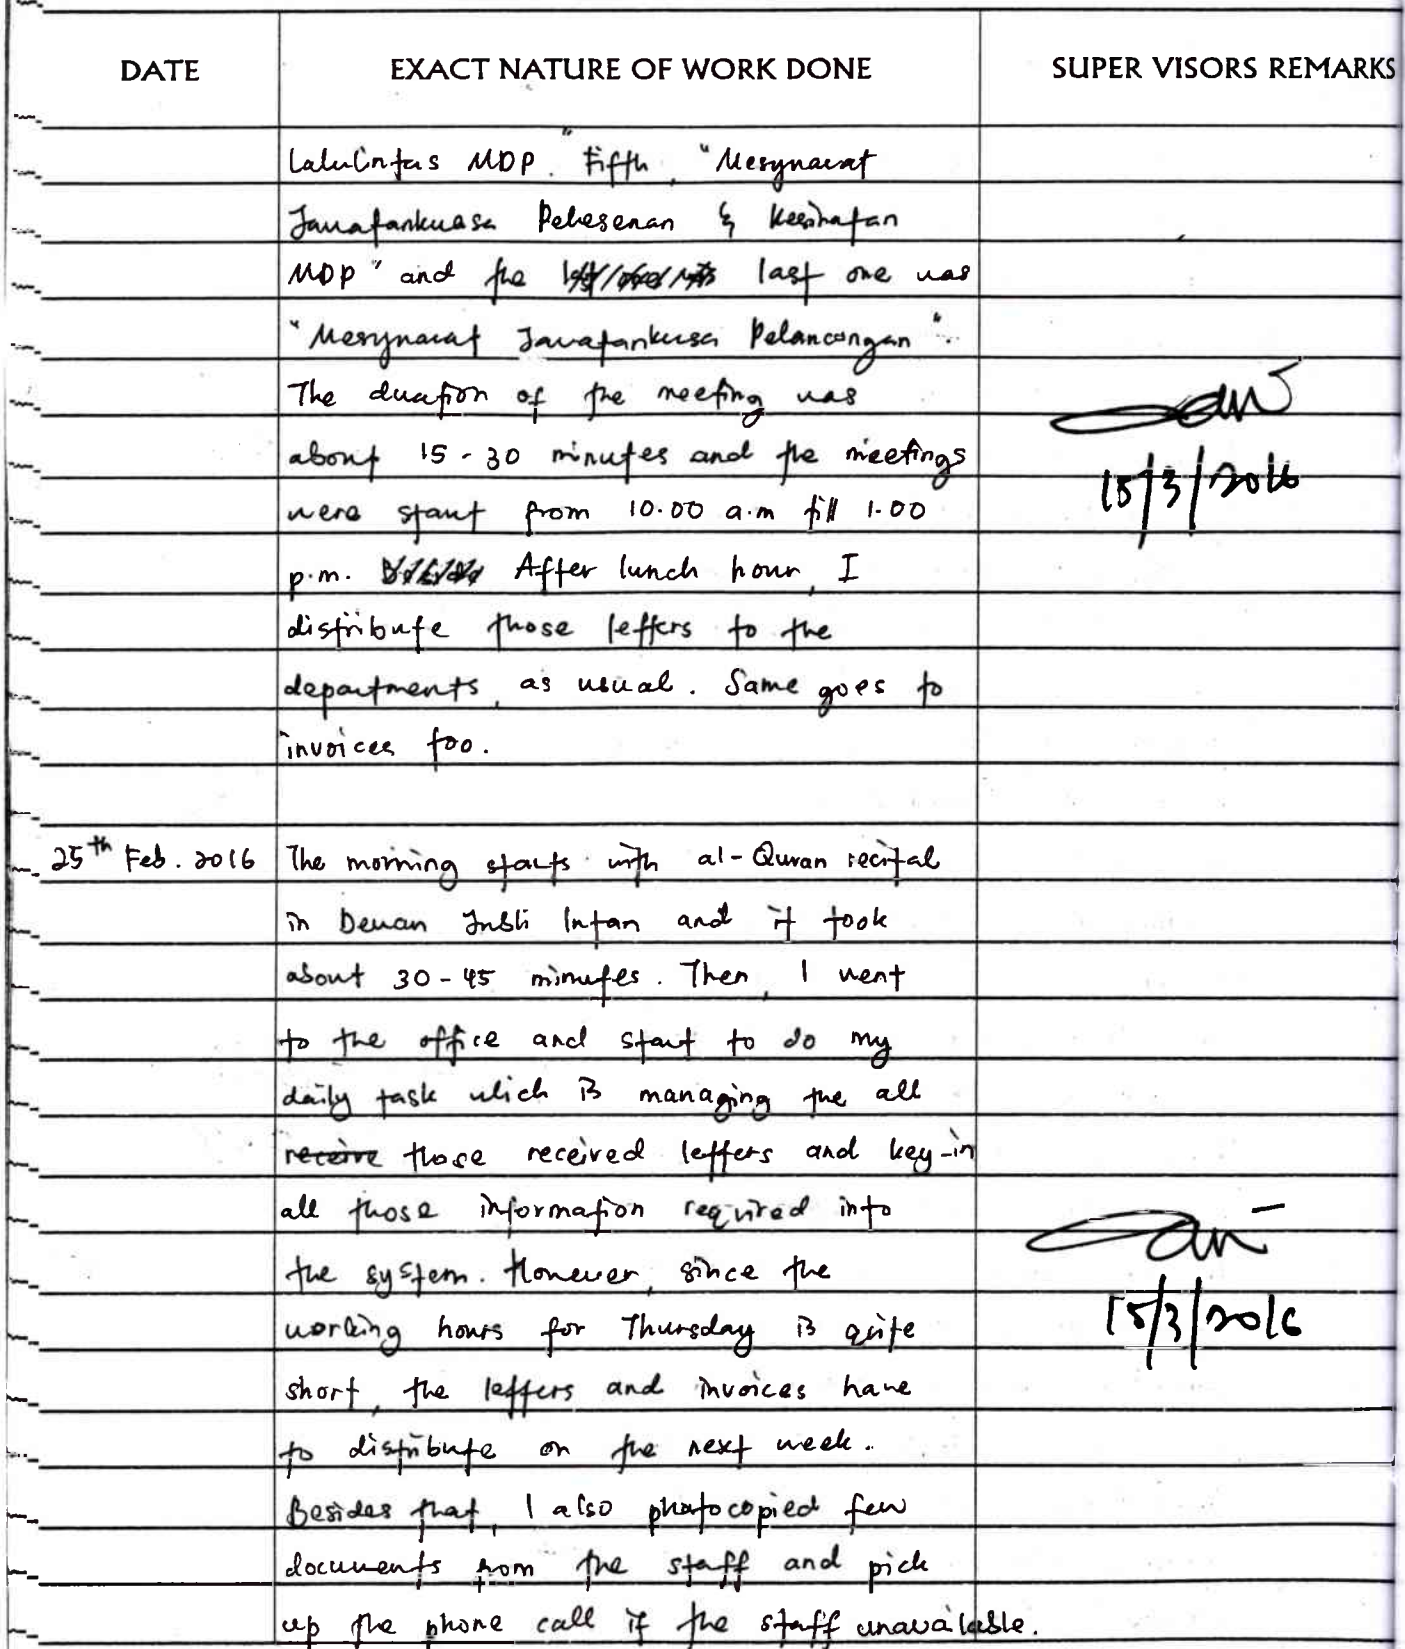 DATE EXACT NATURE OF WORK DONE SUPER VISORS REMARKS
Lalulintas MDP." Fifth, "Mesynarat
Jawatankuasa Pelesenan & Kesihatan
MDP" and the last one was
"Mesynarat Jawatankusa Pelancongan".
The duation of the meeting was
about 15 - 30 minutes and the meetings
15/3/2016
were start from 10.00 a.m till 1.00
p.m. After lunch hour, I
distribute those letters to the
departments, as usual. Same goes to
invoices too.
25th Feb. 2016 The morning starts with al-Quran recital
in Dewan Intan and it took
about 30 - 45 minutes. Then, I went
to the office and start to do my
daily task which is managing the all
receive those received letters and key-in
all those information required into
the system. However, since the
working hours for Thursday is quite
15/3/2016
short, the letters and invoices have
to distribute on the next week.
Besides that, I also photocopied few
documents from the staff and pick
up the phone call if the staff unavailable.